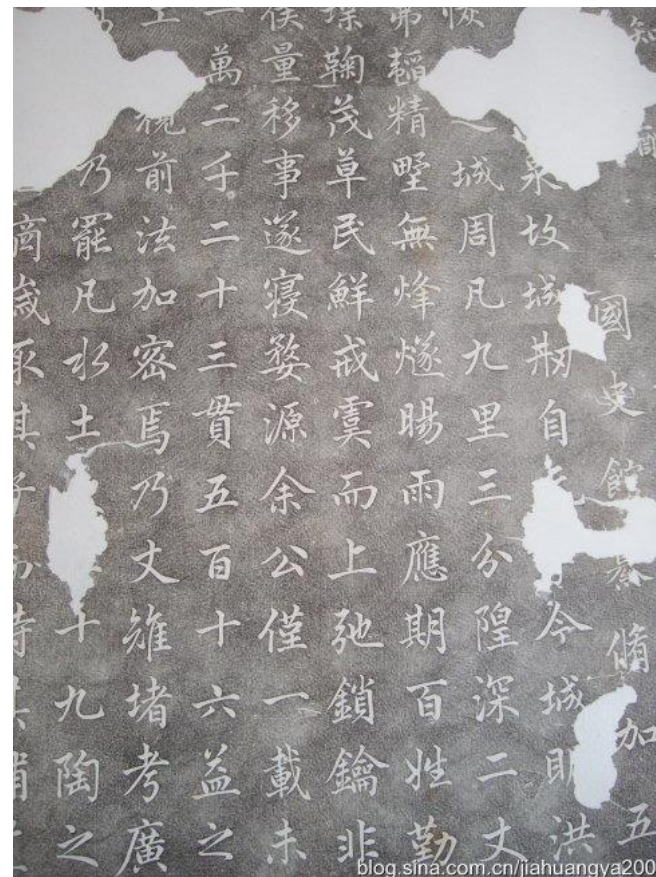 知
國史館脩加五
泉故城刱自今城明洪
城周凡九里三分隍深二丈
弗韜精墅無烽燧暘雨應期百姓勤
堞鞠茂草民鮮戒虞而上弛鎖鑰非
侯量移事遂寝婺源余公僅一載未
一萬二千二十三貫五百十六益之
視前法加密焉乃丈雉堵考廣
乃罷凡水土十九陶之
歲取其
blog.sina.com.cn/jiahuangya200